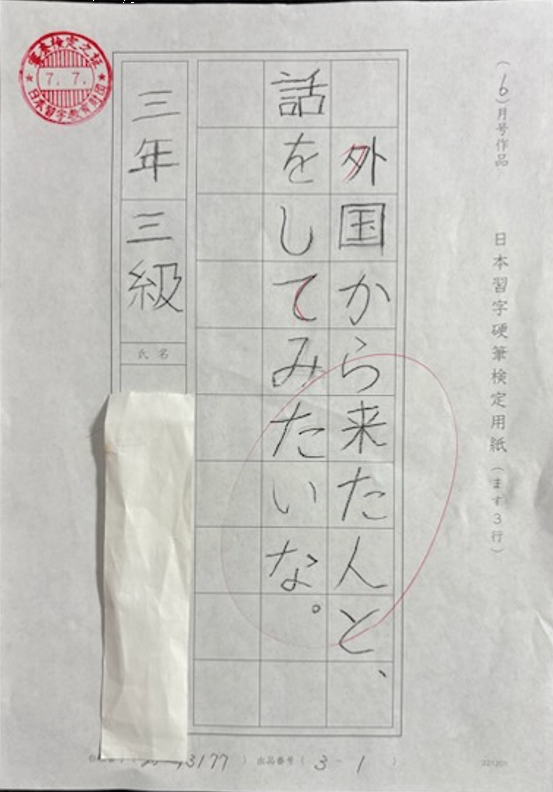 (6)月号作品 日本習字硬筆検定用紙(ます3行)
外国から来た人と、
話をしてみたいな。
三年 三級
氏名
7. 7.
日本習字教育財団
3177) 出品番号( 3 - 1 )
221201